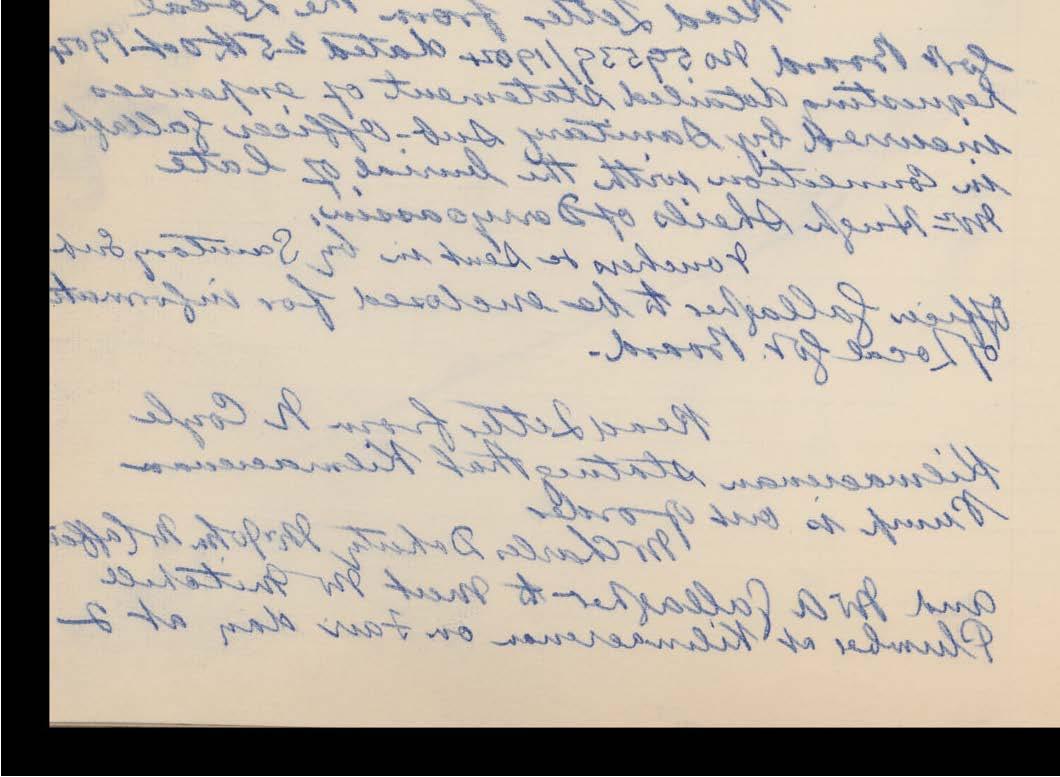 Read Letter from the Local
Gov Board No 59539/1904 dated 25th Oct. 1904
requesting detailed statement of expenses
incurred by Sanitary Sub-Officer Gallaghe
in Connection with the burial of late
Mrs Hugh Sheils of
Vouchers sent in by Sanitary Sub
Officer Gallagher to be enclosed for informati
of Local Gov. Board.-
Read Letter from N Coyle
Kilmacrenan stating that Kilmacrenan
Pump is out of order
Mr Charles Doherty, Mr John McCaffer
and Mr A Gallagher to meet Mr Mitchell
Plumber at Kilmacrenan on Fair day at 2